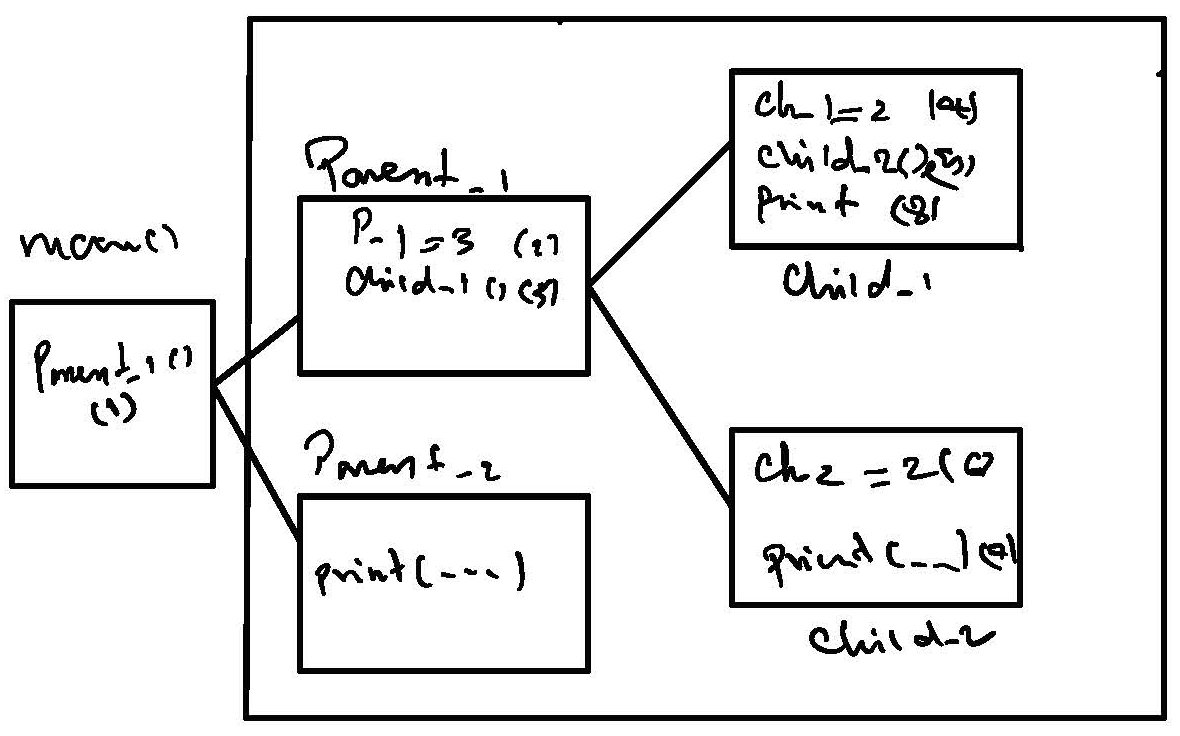 main()
Parent_1()
(1)
Parent_1
P_1=3 (2)
child_1() (3)
Parent_2
print(---)
ch_1=2 (4)
child_2() (5)
print (8)
child_1
ch2 = 2 (6)
print(---) (7)
child_2